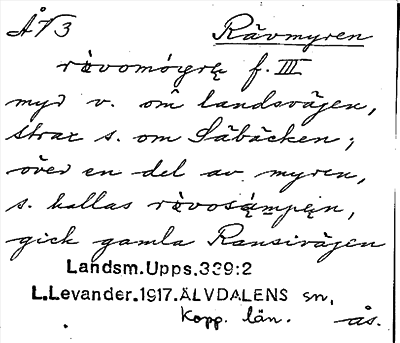 ÅV3 Rävmyren
rävomógrę f. III
myr v. om landsvägen,
strax s. om Säbäcken;
över en del av myren,
s. kallas rävosámpęn,
gick gamla Ransivägen
Landsm.Upps.339:2
L.Levander.1917.ÄLVDALENS sn,
Kopp. län. ås.